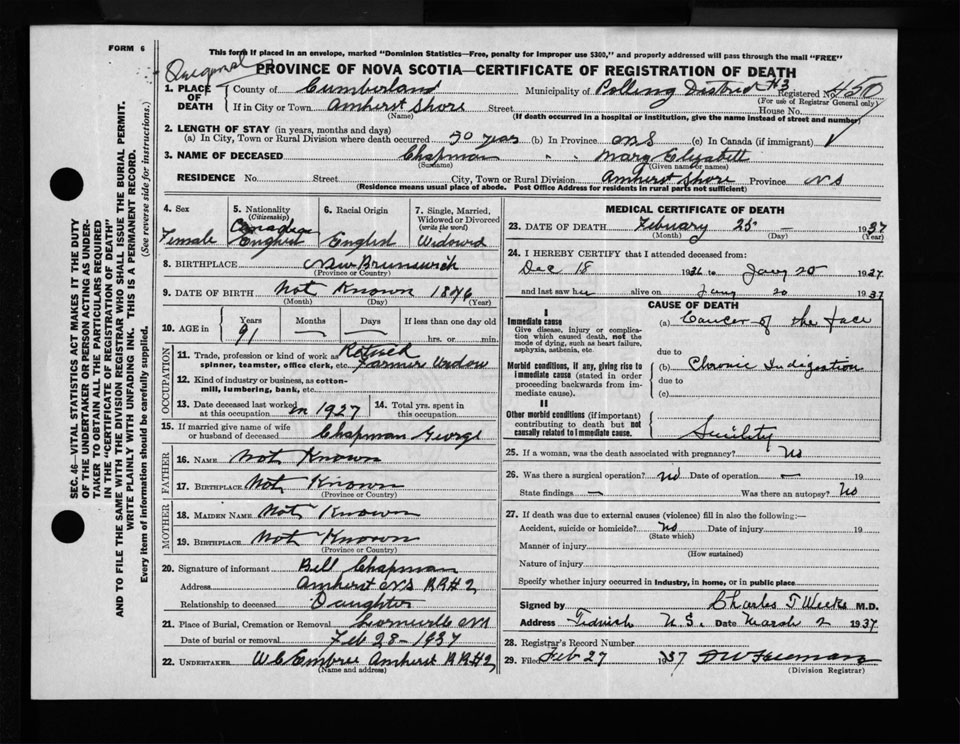 FORM 6
This form if placed in an envelope, marked "Dominion Statistics—Free, penalty for improper use $300," and properly addressed will pass through the mail "FREE"
Original
PROVINCE OF NOVA SCOTIA—CERTIFICATE OF REGISTRATION OF DEATH
1. PLACE OF DEATH
County of Cumberland Municipality of Polling District #3 Registered No. 450
(For use of Registrar General only)
If in City or Town Amherst Shore Street House No.
(Name) (If death occurred in a hospital or institution, give the name instead of street and number)
2. LENGTH OF STAY (in years, months and days)
(a) In City, Town or Rural Division where death occurred 90 years (b) In Province NS (c) In Canada (if immigrant)
3. NAME OF DECEASED Chapman " " Mary Elizabett
(Surname) (Given name or names)
RESIDENCE No. Street City, Town or Rural Division Amherst Shore Province NS
(Residence means usual place of abode. Post Office Address for residents in rural parts not sufficient)
4. Sex
Female
5. Nationality
(Citizenship)
Canadian
English
6. Racial Origin
English
7. Single, Married, Widowed or Divorced
(write the word)
Widowed
8. BIRTHPLACE New Brunswick
(Province or Country)
9. DATE OF BIRTH Not Known 1846
(Month) (Day) (Year)
10. AGE in Years Months Days If less than one day old
91 — — hrs. or min.
OCCUPATION
11. Trade, profession or kind of work as spinner, teamster, office clerk, etc. Retired Farmer Widow
12. Kind of industry or business, as cotton-mill, lumbering, bank, etc.
13. Date deceased last worked at this occupation in 1927
14. Total yrs. spent in this occupation
15. If married give name of wife or husband of deceased Chapman George
FATHER
16. NAME Not Known
17. BIRTHPLACE Not Known
(Province or Country)
MOTHER
18. MAIDEN NAME Not Known
19. BIRTHPLACE Not Known
(Province or Country)
20. Signature of informant Bell Chapman
Address Amherst NS RR#2
Relationship to deceased Daughter
21. Place of Burial, Cremation or Removal
Date of burial or removal Feb 28-1937
22. UNDERTAKER W C Embree Amherst RR#2
(Name and address)
MEDICAL CERTIFICATE OF DEATH
23. DATE OF DEATH February 25 — 1937
(Month) (Day) (Year)
24. I HEREBY CERTIFY that I attended deceased from:
Dec 18 1936 to Jany 20 1937
and last saw her alive on Jany 20 1937
CAUSE OF DEATH
I
Immediate cause
Give disease, injury or complication which caused death, not the mode of dying, such as heart failure, asphyxia, asthenia, etc.
(a) Cancer of the face
due to
Morbid conditions, if any, giving rise to immediate cause (stated in order proceeding backwards from immediate cause).
(b) Chronic Indigestion
due to
(c)
II
Other morbid conditions (if important) contributing to death but not causally related to immediate cause.
Senility
25. If a woman, was the death associated with pregnancy? No
26. Was there a surgical operation? no Date of operation — 19
State findings — Was there an autopsy? No
27. If death was due to external causes (violence) fill in also the following:—
Accident, suicide or homicide? No Date of injury 19
(State which)
Manner of injury
(How sustained)
Nature of injury
Specify whether injury occurred in industry, in home, or in public place
Signed by Charles T Weeks M.D.
Address Tidnish N.S. Date March 2 1937
28. Registrar's Record Number
29. Filed Feb 27 1937
(Division Registrar)
SEC. 46—VITAL STATISTICS ACT MAKES IT THE DUTY
OF THE UNDERTAKER OR PERSON ACTING AS UNDER-
TAKER TO OBTAIN ALL THE PARTICULARS REQUIRED
IN THE "CERTIFICATE OF REGISTRATION OF DEATH"
AND TO FILE THE SAME WITH THE DIVISION REGISTRAR WHO SHALL ISSUE THE BURIAL PERMIT.
WRITE PLAINLY WITH UNFADING INK. THIS IS A PERMANENT RECORD.
Every item of information should be carefully supplied. (See reverse side for instructions.)